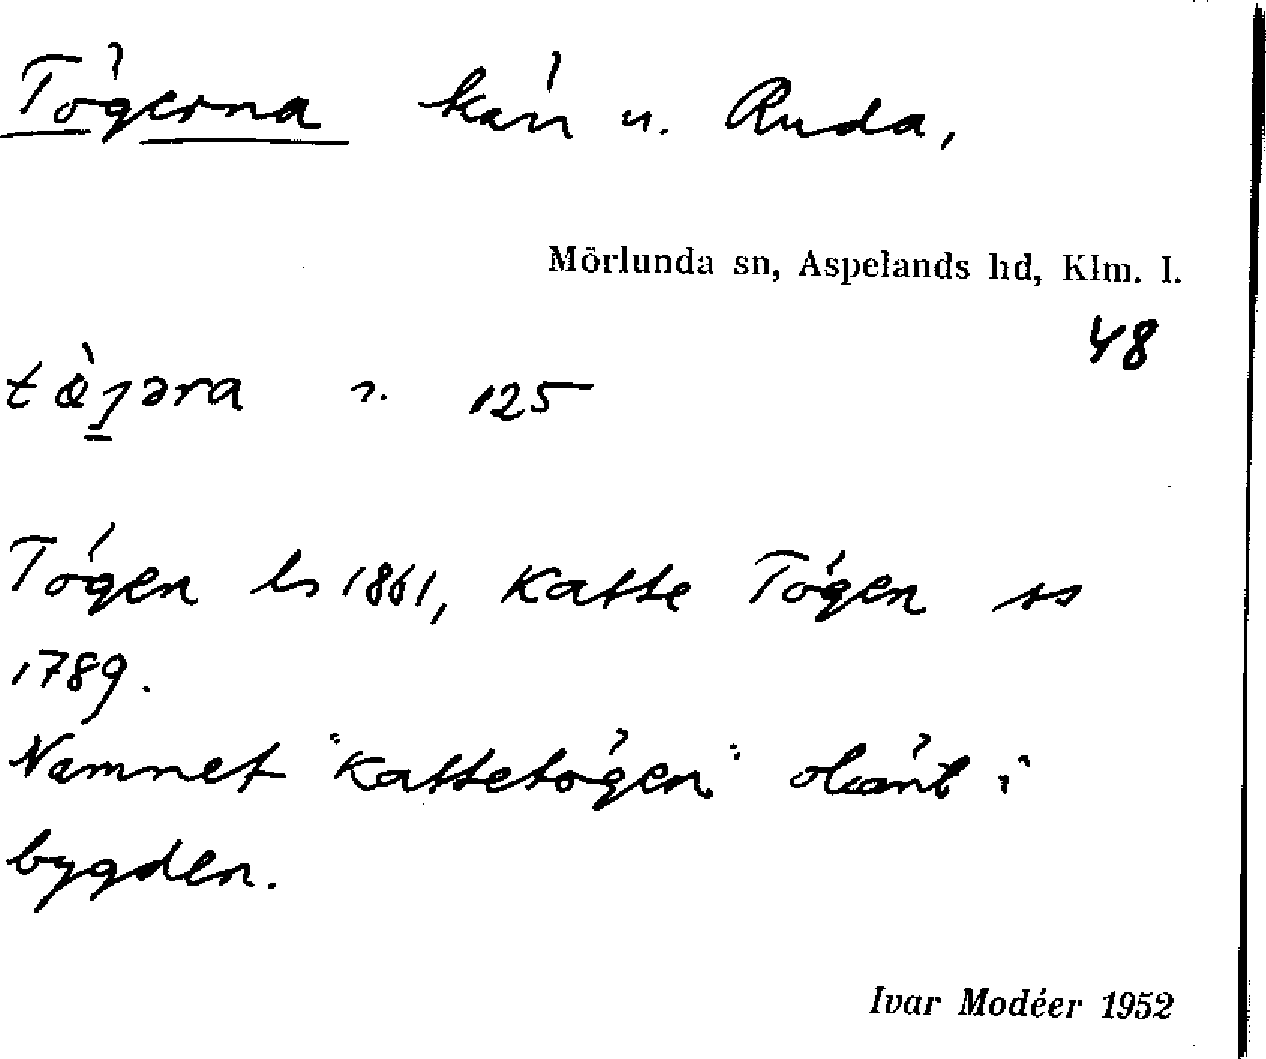 Tögerna kärr u. Ruda,
Mörlunda sn, Aspelands hd, Klm. l.
48
125
Tögen ls 1861, Katte Tögen ss
1789.
Namnet "Kattetögen" okänt i
bygden.
Ivar Modéer 1952